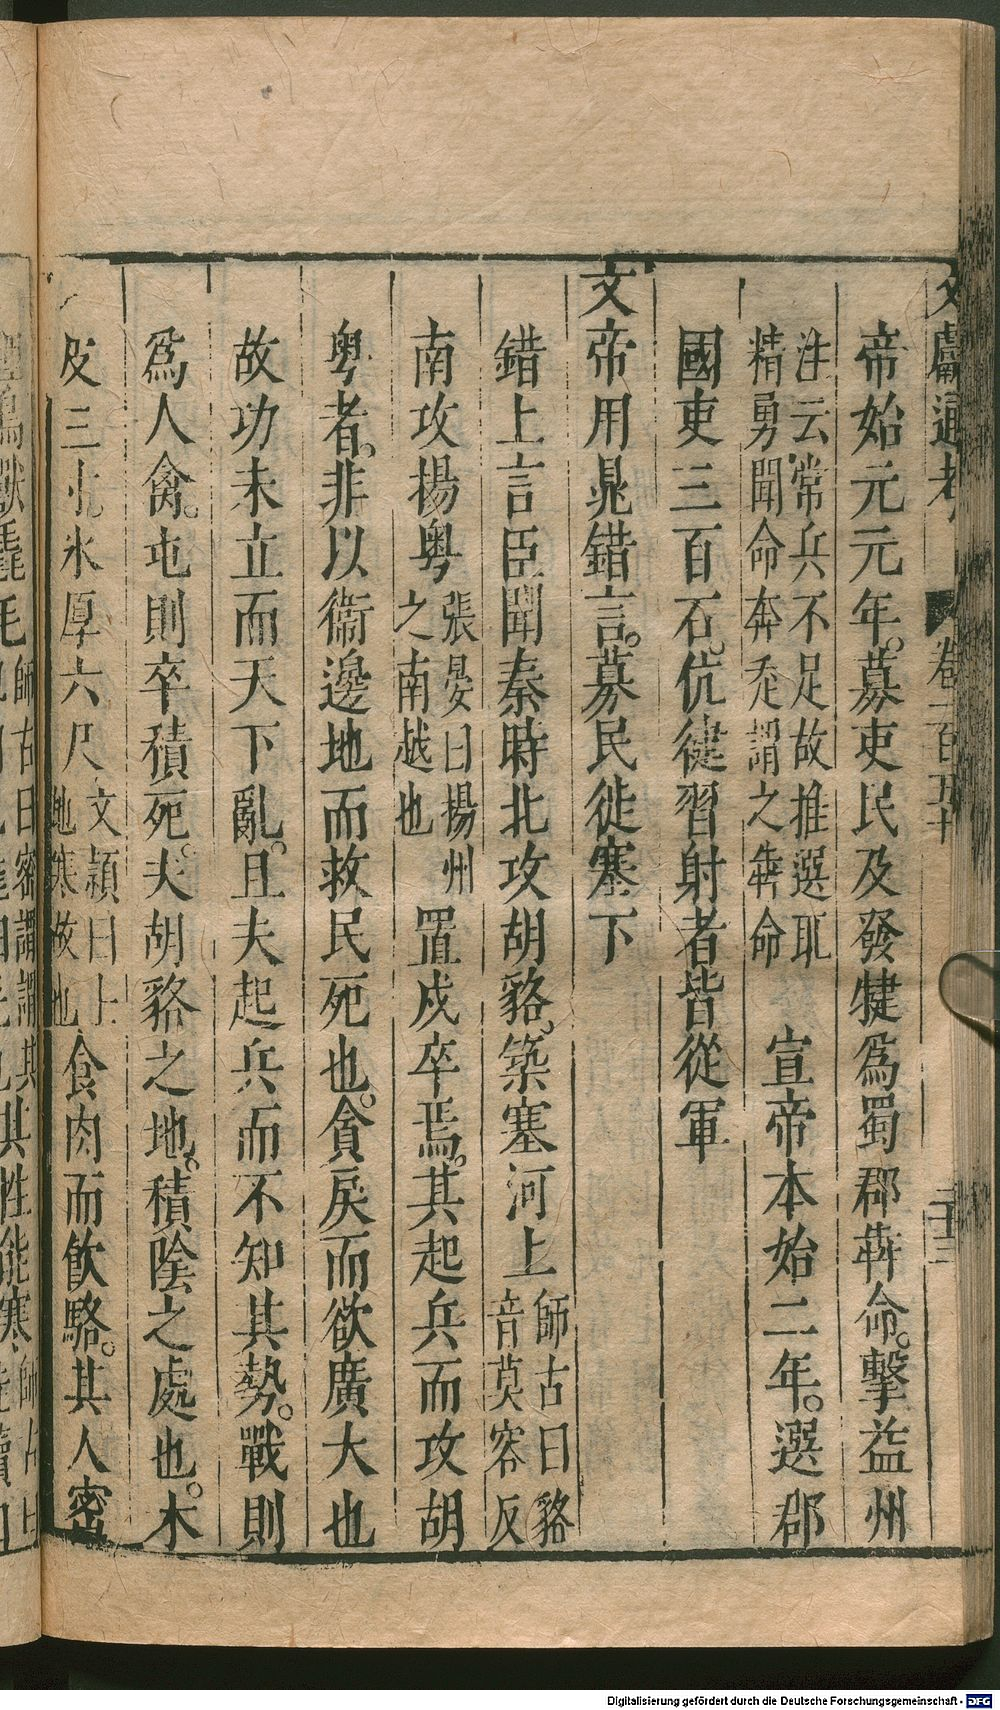 文獻通考 卷一百五十 二十三
帝始元元年。募吏民及發犍爲蜀郡犇命。擊益州
注云常兵不足故推選取
精勇聞命奔走謂之犇命
宣帝本始二年。選郡
國吏三百石。伉徤習射者皆從軍
文帝用鼂錯言。募民徙塞下
錯上言臣聞秦時北攻胡貉。築塞河上
師古曰貉
音莫客反
南攻揚粵
張晏曰揚州
之南越也
置戍卒焉。其起兵而攻胡
粵者。非以衞邊地而救民死也。貪戾而欲廣大也
故功未立而天下亂。且夫起兵而不知其勢。戰則
爲人禽。屯則卒積死。夫胡貉之地。積陰之處也。木
皮三寸。氷厚六尺
文穎曰土
地寒故也
食肉而飲駱。其人密
師古曰密謂
其性能寒
Digitalisierung gefördert durch die Deutsche Forschungsgemeinschaft - DFG